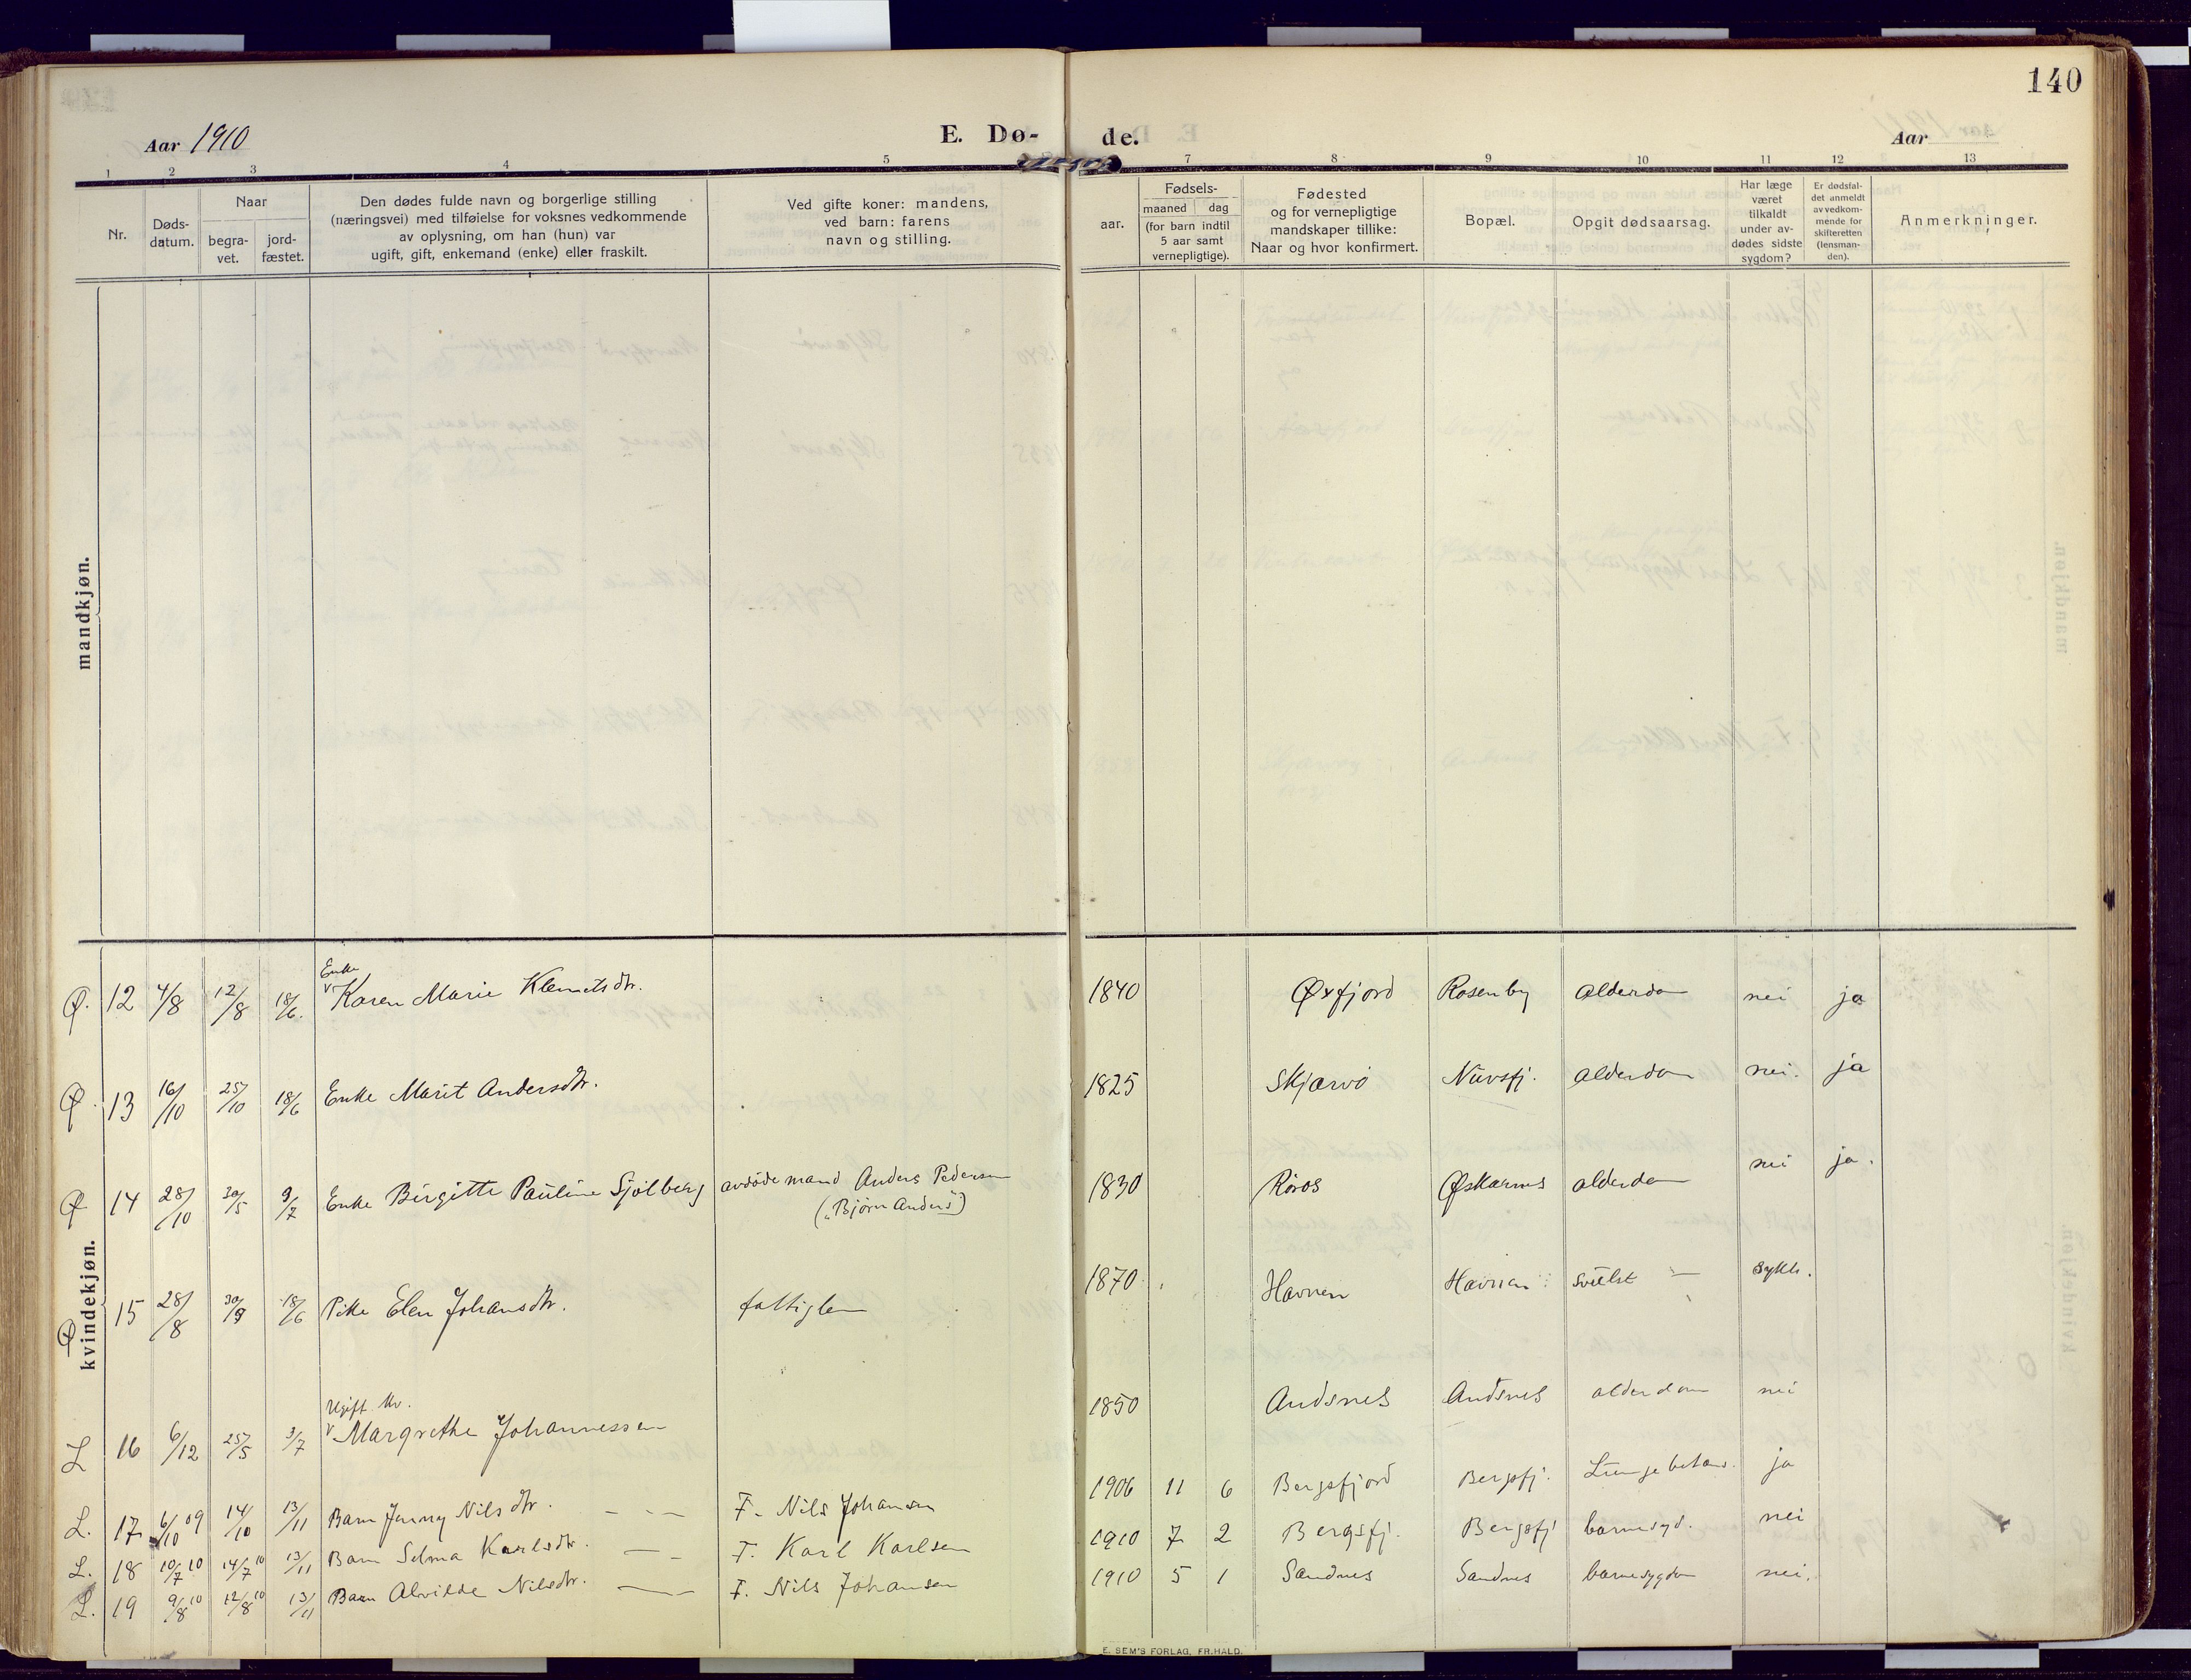 140
Aar 1910
E. Dø-
de.
Aar
1 2 3 4 5 7 8 9 10 11 12 13
Nr.
Døds-
datum.
Naar
begra-
vet.
jord-
fæstet.
Den dødes fulde navn og borgerlige stilling
(næringsvei) med tilføielse for voksnes vedkommende
av oplysning, om han (hun) var
ugift, gift, enkemand (enke) eller fraskilt.
Ved gifte koner: mandens,
ved barn: farens
navn og stilling.
aar.
Fødsels-
maaned dag
(for barn indtil
5 aar samt
vernepligtige).
Fødested
og for vernepligtige
mandskaper tillike:
Naar og hvor konfirmert.
Bopæl.
Opgit dødsaarsag.
Har læge
været
tilkaldt
under av-
dødes sidste
sygdom?
Er dødsfal-
det anmeldt
av vedkom-
mende for
skifteretten
(lensman-
den).
Anmerkninger.
mandkjøn.
kvindekjøn.
Enke
Ø. 12 4/8 12/8 18/6. Karen Marie Klemetsdtr. 1840 Øxfjord Rosenby alderdom nei ja
Ø. 13 16/10 25/10 18/6 Enke Marit Andersdtr. 1825 Skjærvö Nuvsfj. alderdom nei. ja
Ø 14 28/10 30/5 9/7 Enke Birgitte Pauline Sjölberg avdöde mand Anders Pedersen 1830 Röros Øskarnes alderdom nei ja.
(„Bjørn Anders")
Ø 15 28/8 30/9 18/6 Pike Elen Johansdtr. fattiglem 1870 Havnen Havnen svulst sykh.
Ugift. kv.
L 16 6/12 25/5 3/7 Margrethe Johannessen 1850 Andsnes Andsnes alderdom nei
L. 17 6/10 09 14/10 13/11 Barn Jenny Nilsdtr. — F. Nils Johansen 1906 11 6 Bergsfjord Bergsfj. Lungebetæn. ja
L. 18 10/7 10 14/7 10 13/11 Barn Selma Karlsdtr. — F. Karl Karlsen 1910 7 2 Bergsfj. Bergsfj barnesyd. nei
L. 19 9/8 10 12/8 10 13/11 Barn Alvilde Nilsdtr. — F. Nils Johansen 1910 5 1 Sandnes Sandnes barnesygdom nei.
E. SEM'S FORLAG, FR.HALD.